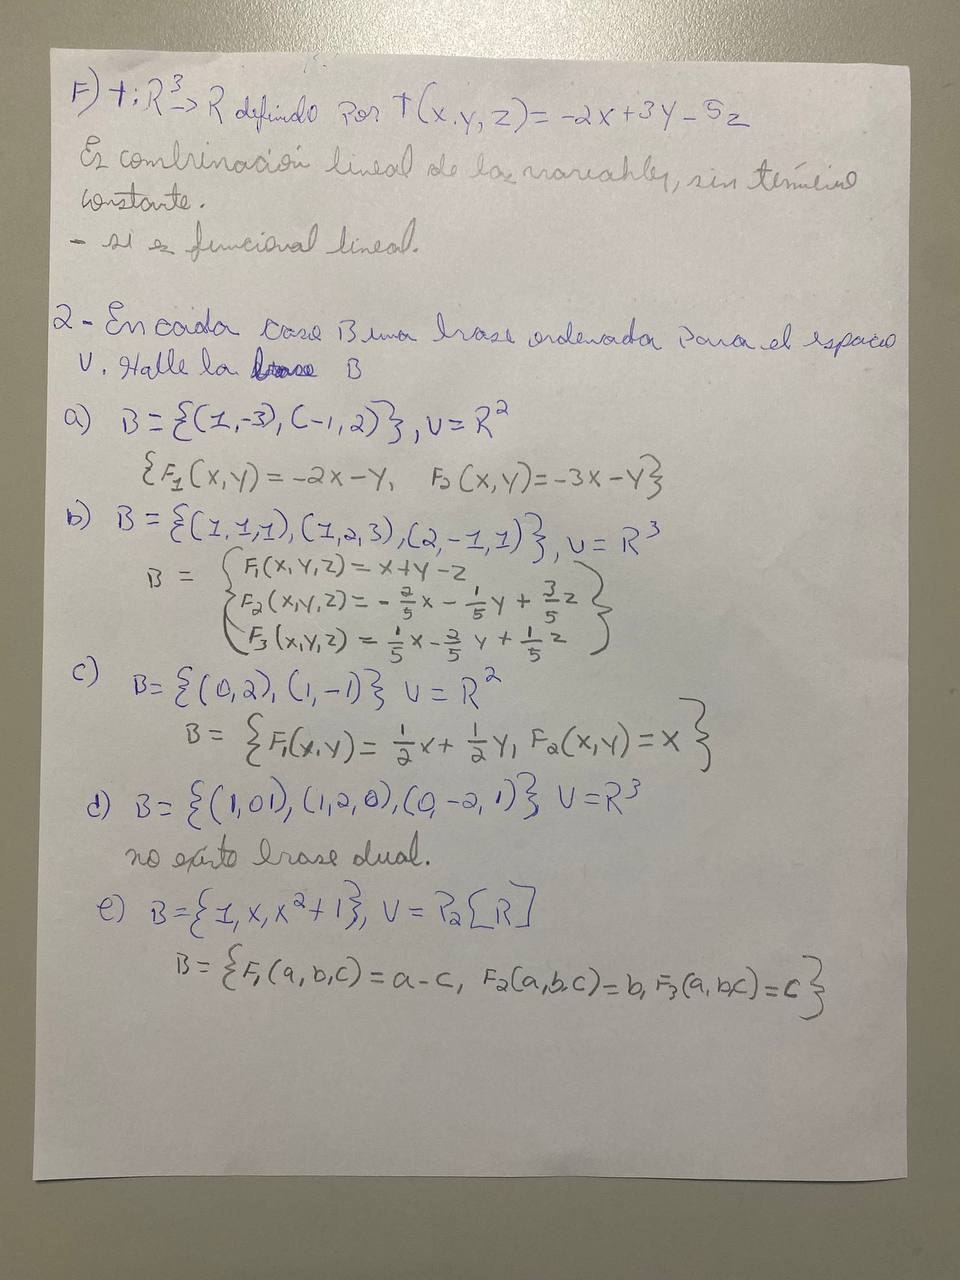 F) t: R³ -> R definido Por t(x,y,z)= -2x+3y-5z
Es combinación lineal de las variables, sin término
constante.
- si es funcional lineal.
2- En cada caso B una base ordenada Para el espacio
V. Halle la base B
a) B = {(1,-3), (-1,2)}, V = R²
{F₁(x,y) = -2x-y, F₂(x,y)=-3x-y}
b) B = {(1,1,1),(1,2,3),(2,-1,1)}, V = R³
B = { F₁(x,y,z) = x+y-z
F₂(x,y,z) = -2/5x - 1/5y + 3/5z
F₃(x,y,z) = 1/5x - 2/5y + 1/5z }
c) B= {(0,2), (1,-1)} V = R²
B = {F₁(x,y) = 1/2x + 1/2y, F₂(x,y) = x}
d) B = {(1,01),(1,2,0),(0,-2,1)} V = R³
no existe base dual.
e) B = {1, x, x²+1}, V = P₂[R]
B = {F₁(a,b,c) = a-c, F₂(a,b,c) = b, F₃(a,b,c) = c}